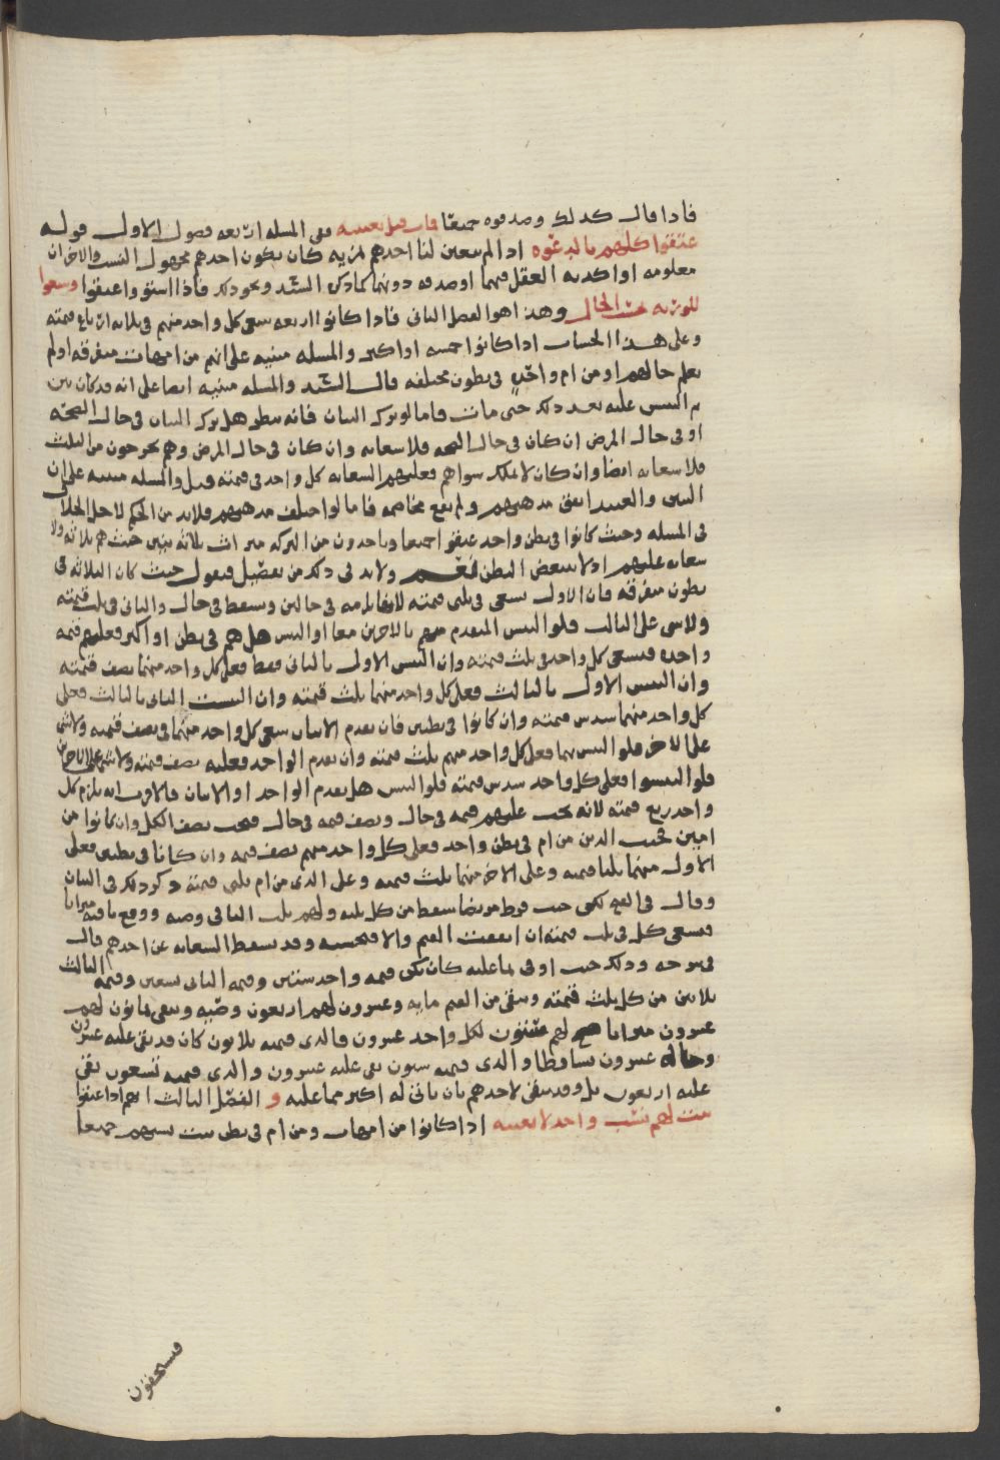 فاذا قال كذلك وصدقوه جميعا فان قيل بعينه ففي المسله اربعه فصول الاول قوله
عتقوا كلهم بالدعوه اذا لم يتعين لنا احدهم لمزيه كان يكون احدهم مجهول النسب والاخران
معلومه او اكذبه العقل فيهما او صدقه دونهما كما ذكر السيد ونحو ذلك فاذا استووا عتقوا وسعوا
للورثه بحسب الحال وهذا هو الفصل الثاني فاذا كانوا اربعه سعى كل واحد منهم في ثلاثه ارباع قيمته
وعلى هذا الحساب اذا كانوا خمسه او اكثر والمسله مبنيه على انهم من امهات متفرقه او لم
يعلم حالهم او من ام واحده في بطون مختلفه قال السيد والمسله مبنيه ايضا على انه قد كان بين
ثم التبس عليه بعد ذلك حتى مات فاما لو ترك البيان فانه ينظر هل ترك البيان في حال الصحه
او في حال المرض ان كان في حال الصحه فلا سعايه وان كان في حال المرض وهم يخرجون من الثلث
فلا سعايه ايضا وان كان لا يملك سواهم فعليهم السعايه كل واحد في قيمته قيل والمسله مبنيه على ان
البنين والعبيد اتفق مذهبهم ولم يقع مخاصمه فاما لو اختلف مذهبهم فلا بد من الحكم لاجل الخلاف
في المسله وحيث كانوا في بطن واحد عتقوا جميعا وياخذون من التركه ميراث ثلاثه بنين حيث هم ثلاثه ولا
سعايه عليهم اذ لا يتبعض البطن نعم ولا بد في ذلك من تفصيل فنقول حيث كان الثلاثه في
بطون متفرقه فان الاول يسعى في ثلثي قيمته لانها تلزمه في حالين وتسقط في حال والثاني في ثلث قيمته
ولا شي على الثالث فلو التبس المتقدم منهم بالاخرين معا او التبس هل هم في بطن او اكثر فعليهم قيمه
واحده فيسعى كل واحد في ثلث قيمته وان التبس الاول بالثاني فقط فعلى كل واحد منهما نصف قيمته
وان التبس الاول بالثالث فعلى كل واحد منهما ثلث قيمته وان التبس الثاني بالثالث فعلى
كل واحد منهما سدس قيمته وان كانوا في بطنين فان تقدم الاثنان سعى كل واحد منهما في نصف قيمته ولا شي
على الاخر فلو التبس بهما فعلى كل واحد منهم ثلث قيمته وان تقدم الواحد فعليه نصف قيمته ولا شي على الاخرين
فلو التبسوا فعلى كل واحد سدس قيمته فلو التبس هل تقدم الواحد او الاثنان فالاقرب انه يلزم كل
واحد ربع قيمته لانه يجب عليهم قيمه في حال ونصف قيمه في حال فيجب نصف الكل وان كانوا من
امين فحيث الذين من ام في بطن واحد فعلى كل واحد منهم نصف قيمه وان كانا في بطنين فعلى
الاول منهما ثلثا قيمته وعلى الاخر منهما ثلث قيمته وعلى الذي من ام ثلثي قيمته ذكر ذلك في البيان
فيسعى كل في ثلث قيمته ان اتفقت القيم والا فبحسبه وقد تسقط السعايه عن احدهم قال
في شرحه وذلك حيث اوفى بما عليه كان تكن قيمه واحد ستين وقيمه الثاني تسعين وقيمه الثالث
ثلاثين من كل ثلث قيمته ويبقى من القيم مايه وعشرون لهم اربعون وصيه ويبقى ثمانون لهم
عشرون ميراثا لهم ستون لكل واحد عشرون فالذي قيمته ثلاثون كان قد بقي عليه عشرون
وحاله عشرون تساقطا والذي قيمته ستون بقي عليه عشرون والذي قيمته تسعون بقي
عليه اربعون بل وقد يبقى لاحدهم بان ياتي له اكثر مما عليه و الفصل الثالث انهم اذا عتقوا
ثبت لهم نسب واحد لا بعينه اذا كانوا من امهات ومن ام في بطن ثبت نسبهم جميعا
فيستحقون